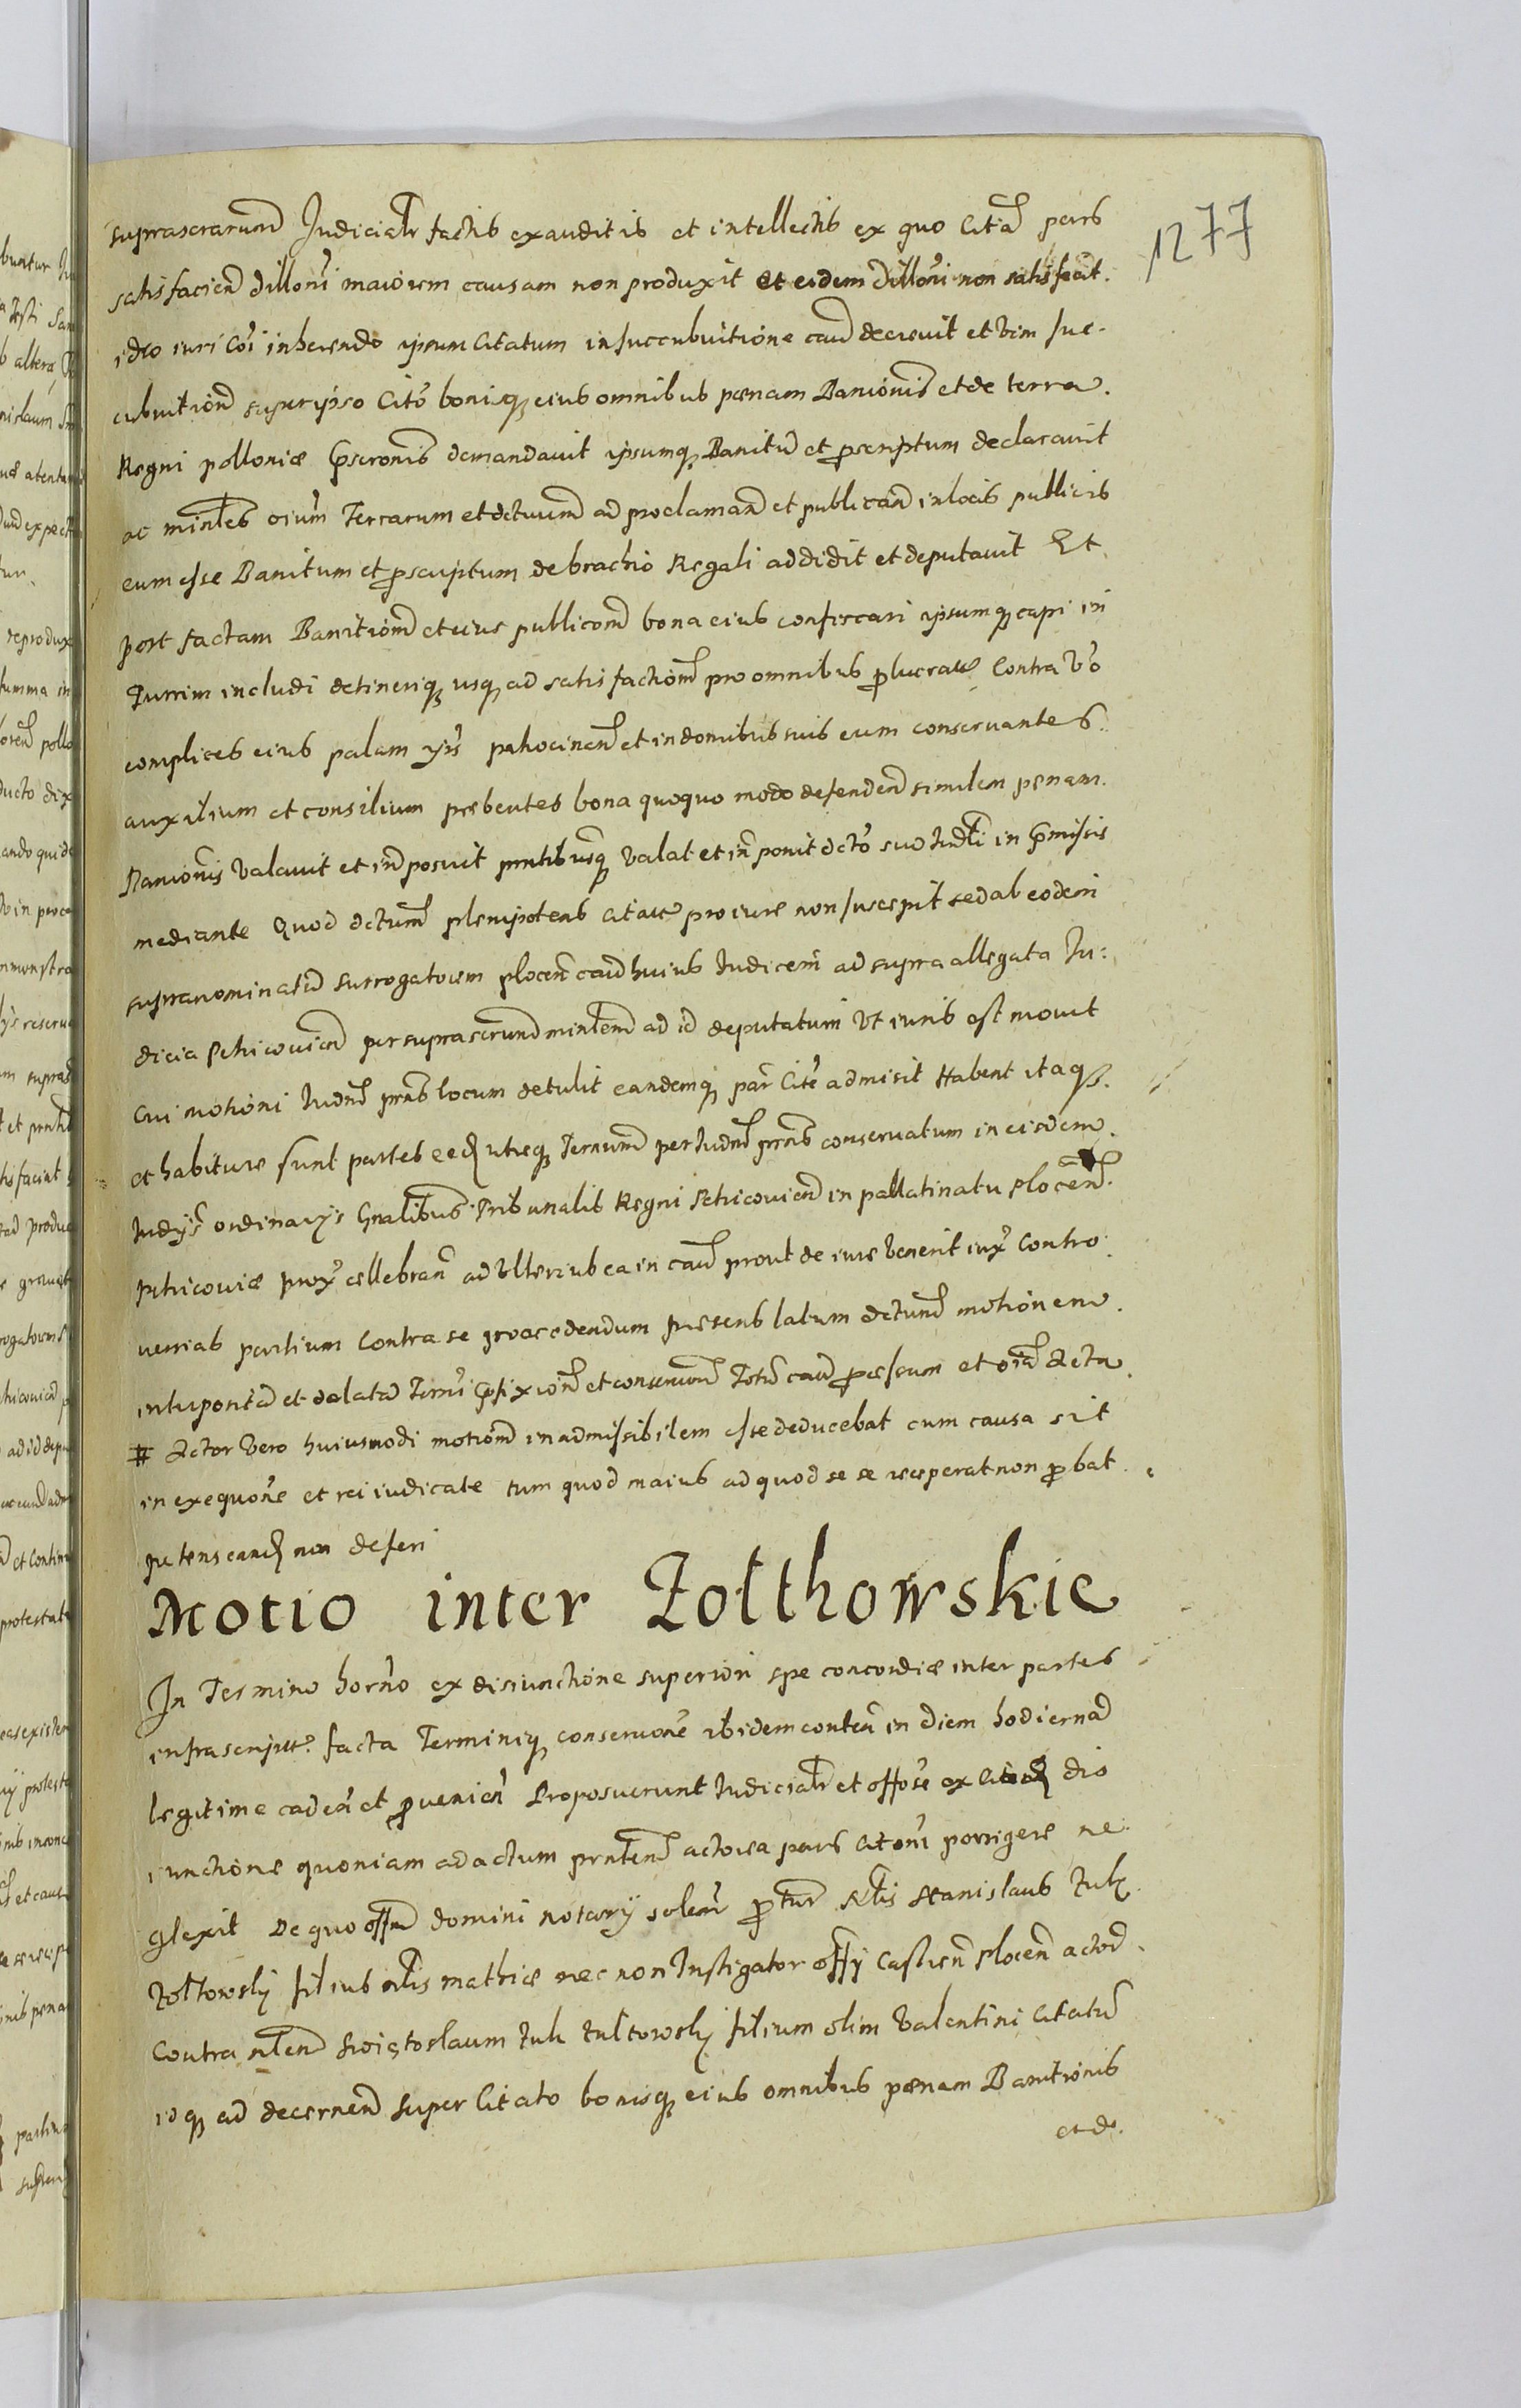 1277
suprascrarum Judicialr factis exauditis et intellectis ex quo Cita pars
satisfacien dilloni maiorem causam non produxit et eidem dilloni non satisfecit
ideo iuri coi inherendo ipsum Citatum in succubuitione caus decrevit et vim suc-
cubuition super ipso Cito bonisq eius omnibus pœnam Banionis et de terra
Regni polloniæ pscronis demandavit ipsumq Banitu et proscriptum declaravit
ac minles oium Terrarum et dctuum ad proclaman et publican in locis publicis
eum esse Banitum et proscriptum de brachio Regali addidit et deputavit Et
post factam Banitiom et eius publicom bona eius confiscari ipsumq capi in
Turrim includi detineriq usq ad satisfactiom pro omnibus plucratis Contra vo
complices eius palam ipsi patrocinan et in domibus suis eum conservantes
auxilium et consilium præbentes bona quoquo modo defenden similem pœnam
Banionis valavit et in posuit pntibusq valat et in ponit dcto suo Judli in pmissis
mediante Quod dctum plenipotens Citati pro iure non suscepit sed ab eodem
supranominatu Surrogatorem plocen caus huius Judicem ad supra allegata Ju:
dicia Petricovien per suprascrum minlem ad id deputatum Ut iuris est movit
Cui motioni Judm prns locum detulit eandemq par Cite admisit Habent itaq
et habiture sunt partes eed utreq Termum per Judm prns conservatum in eisdem
Judys ordinarys Gnalibus Tribunalis Regni Petricovien in pallatinatu Plocen
Petricoviæ prox cellebran ad Ulterius ea in caus prout de iure venerit iux Contro
versias partium Contra se procedendum præsens latum dctum motionem
interposita et delata Termi pfixiom et conservom Totu caus pcessum et oia Acta
# Actor Vero huiusmodi motiom inadmissibilem esse deducebat cum causa sit
in exequone et rei iudicate tum quod maius ad quod se se receperat non probat
petens eand non deferi
Motio inter Zolthowskie
In Termino horno ex disiunctione superiori spe concordiæ inter partes
infrascript facta Terminiq conservone ibidem conten in diem hodierna
legitime caden et pvenien Proposuerunt Judicialr et offose ex Citad dis
iunctione quoniam ad actum prntem actorea pars Citoni porrigere ne
glexit De quo offm domini notarij solen ptur Nlis Stanislaus Zulk
Zoltowsky filius nlis Mathiæ nec non Instigator offy Castren Plocen actor
Contra nlem Swiętoslaum Zulk Zultowsky filium olim Valentini Citatu
idq ad decernen super Citato bonisq eius omnibus pœnam Banitionis
et de